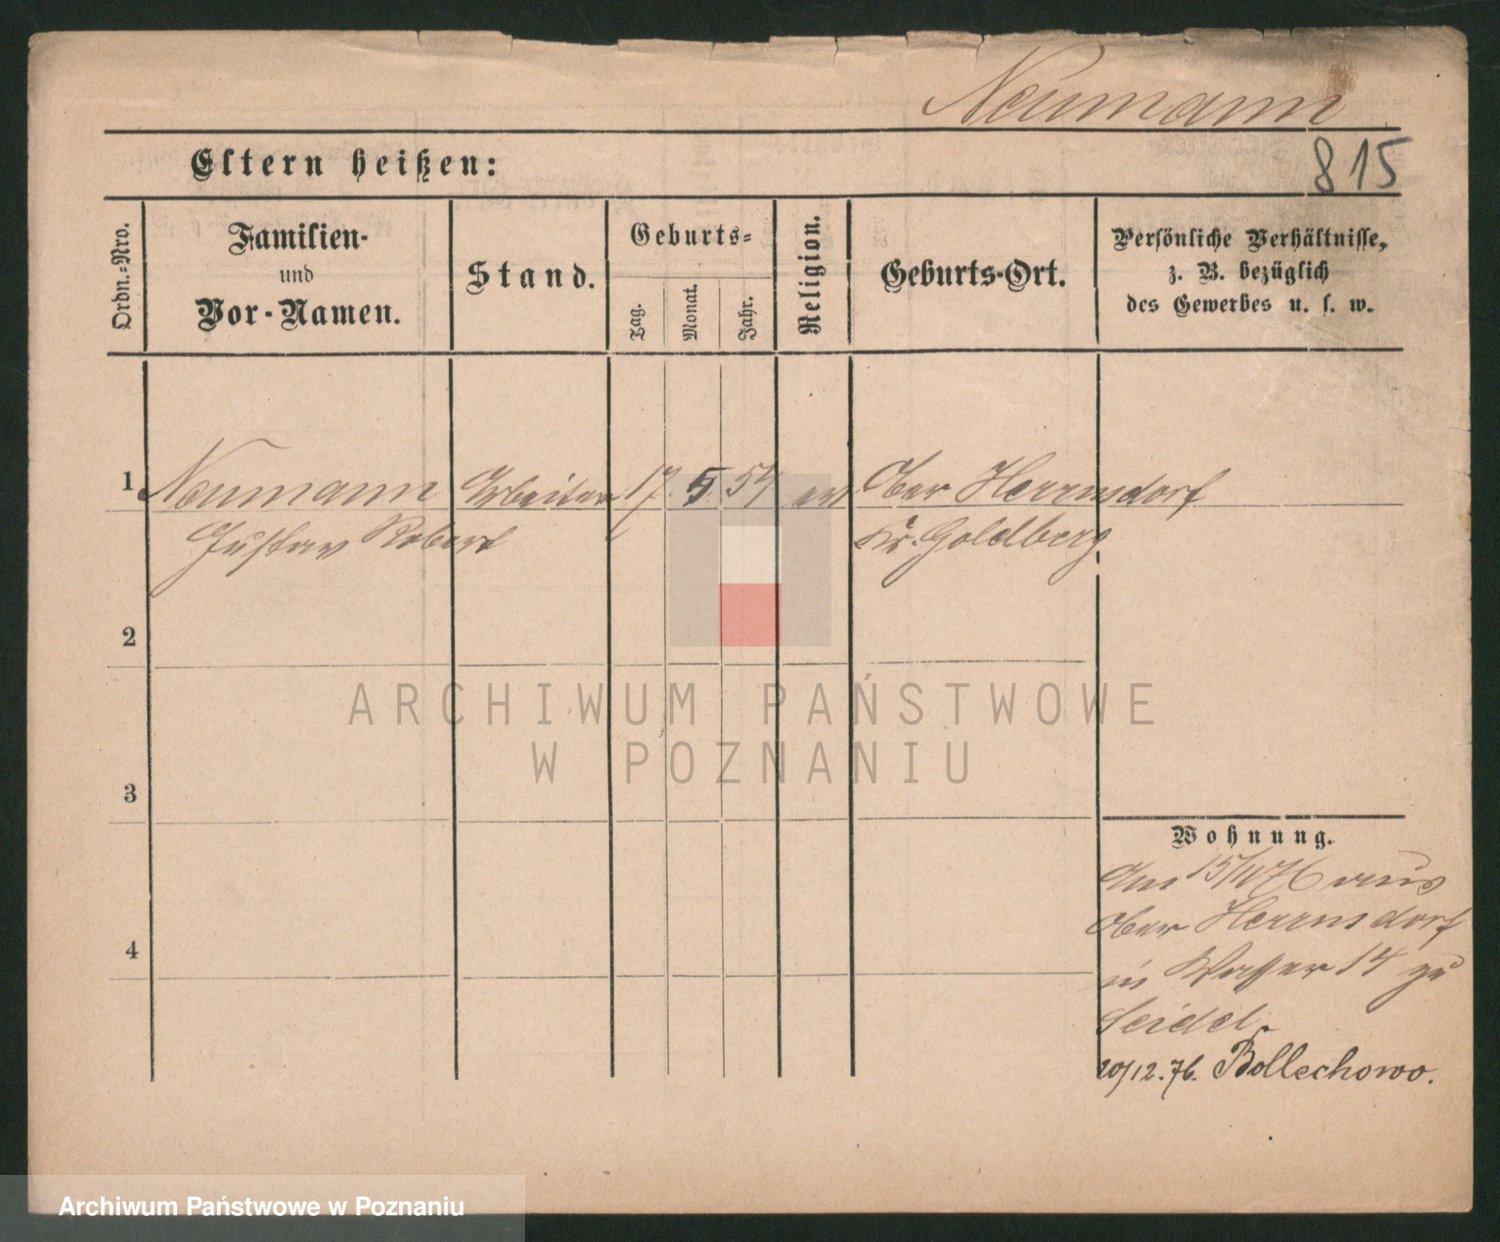 Neumann
815
Eltern heißen:
Ordn.=Nro.
Familien-
und
Vor-Namen.
Stand.
Geburts=
Tag.
Monat.
Jahr.
Religion.
Geburts-Ort.
Persönliche Verhältnisse,
z. B. bezüglich
des Gewerbes u. s. w.
1 Neumann Arbeiter 17. 5. 54 ev Ober Herrnsdorf
Gustav Robert Kr. Goldberg
2
3
4
Wohnung.
Am 15/11 76 aus
Ober Herrnsdorf
in Wasser 14 zu
Seidel
20/12. 76. Bollechowo.
ARCHIWUM PAŃSTWOWE
W POZNANIU
Archiwum Państwowe w Poznaniu